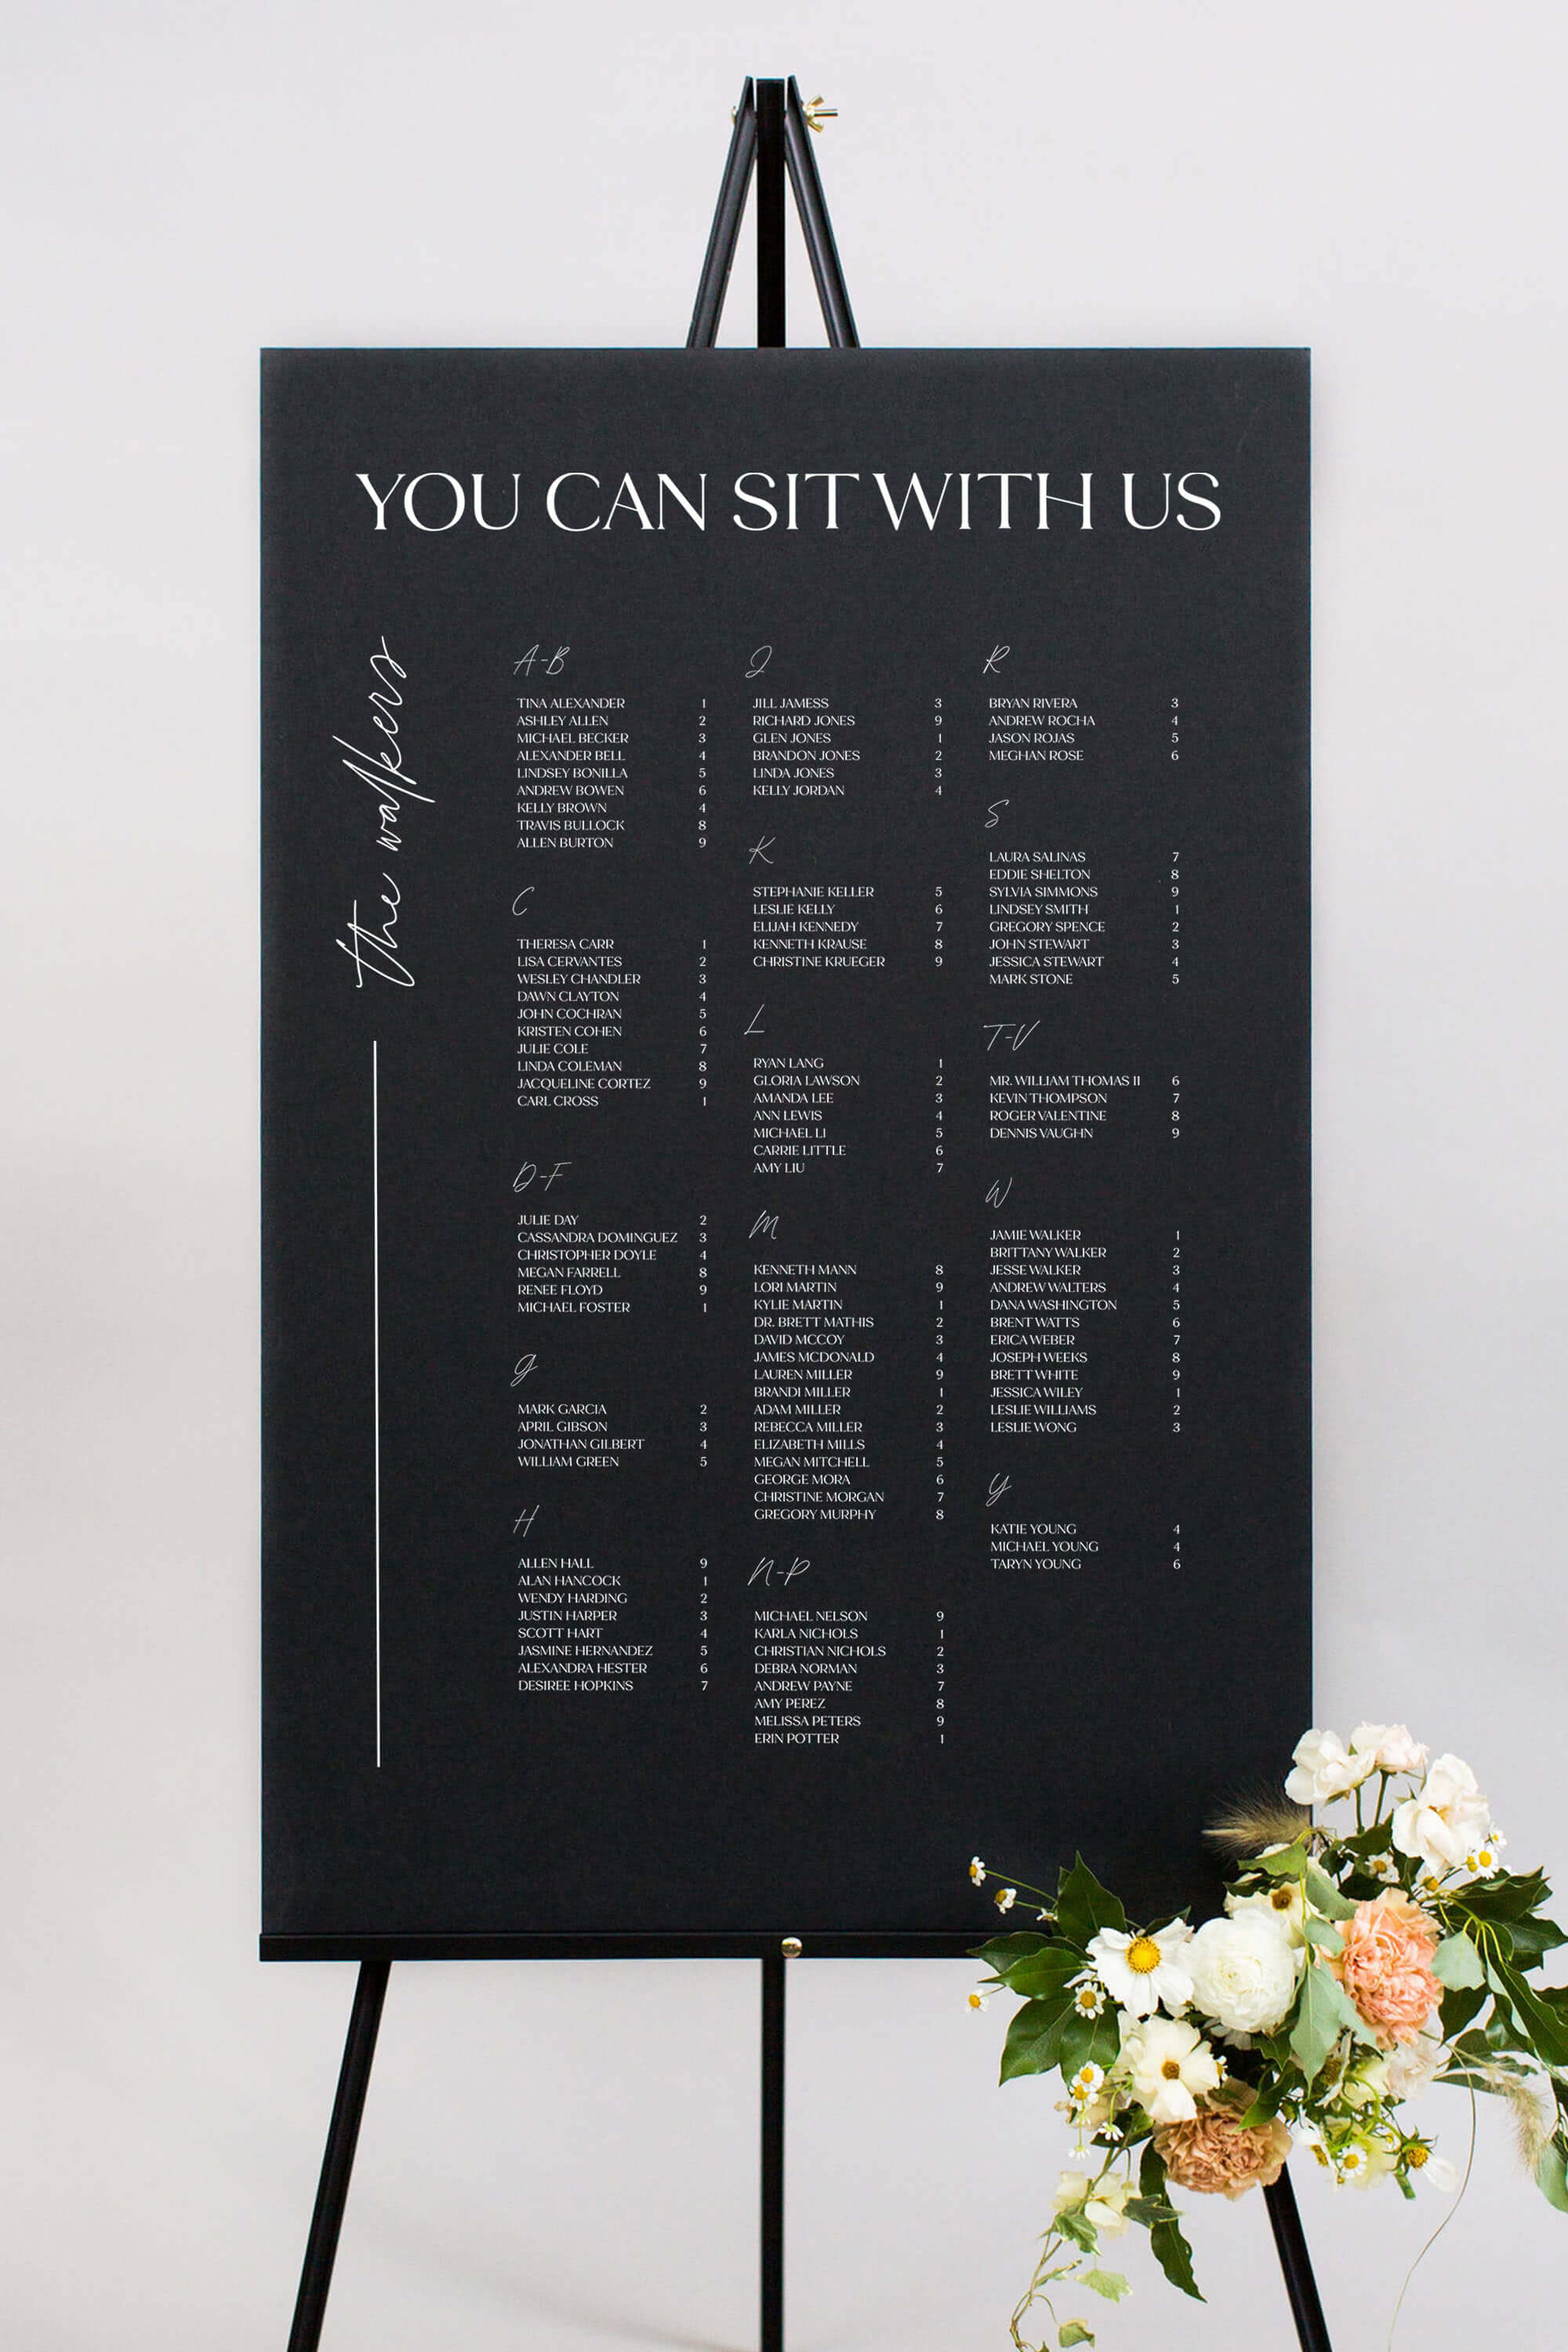 YOU CAN SIT WITH US
the walkers
A-B
TINA ALEXANDER 1
ASHLEY ALLEN 2
MICHAEL BECKER 3
ALEXANDER BELL 4
LINDSEY BONILLA 5
ANDREW BOWEN 6
KELLY BROWN 4
TRAVIS BULLOCK 8
ALLEN BURTON 9
C
THERESA CARR 1
LISA CERVANTES 2
WESLEY CHANDLER 3
DAWN CLAYTON 4
JOHN COCHRAN 5
KRISTEN COHEN 6
JULIE COLE 7
LINDA COLEMAN 8
JACQUELINE CORTEZ 9
CARL CROSS 1
D-F
JULIE DAY 2
CASSANDRA DOMINGUEZ 3
CHRISTOPHER DOYLE 4
MEGAN FARRELL 8
RENEE FLOYD 9
MICHAEL FOSTER 1
g
MARK GARCIA 2
APRIL GIBSON 3
JONATHAN GILBERT 4
WILLIAM GREEN 5
H
ALLEN HALL 9
ALAN HANCOCK 1
WENDY HARDING 2
JUSTIN HARPER 3
SCOTT HART 4
JASMINE HERNANDEZ 5
ALEXANDRA HESTER 6
DESIREE HOPKINS 7
J
JILL JAMESS 3
RICHARD JONES 9
GLEN JONES 1
BRANDON JONES 2
LINDA JONES 3
KELLY JORDAN 4
K
STEPHANIE KELLER 5
LESLIE KELLY 6
ELIJAH KENNEDY 7
KENNETH KRAUSE 8
CHRISTINE KRUEGER 9
L
RYAN LANG 1
GLORIA LAWSON 2
AMANDA LEE 3
ANN LEWIS 4
MICHAEL LI 5
CARRIE LITTLE 6
AMY LIU 7
M
KENNETH MANN 8
LORI MARTIN 9
KYLIE MARTIN 1
DR. BRETT MATHIS 2
DAVID MCCOY 3
JAMES MCDONALD 4
LAUREN MILLER 9
BRANDI MILLER 1
ADAM MILLER 2
REBECCA MILLER 3
ELIZABETH MILLS 4
MEGAN MITCHELL 5
GEORGE MORA 6
CHRISTINE MORGAN 7
GREGORY MURPHY 8
N-P
MICHAEL NELSON 9
KARLA NICHOLS 1
CHRISTIAN NICHOLS 2
DEBRA NORMAN 3
ANDREW PAYNE 7
AMY PEREZ 8
MELISSA PETERS 9
ERIN POTTER 1
R
BRYAN RIVERA 3
ANDREW ROCHA 4
JASON ROJAS 5
MEGHAN ROSE 6
S
LAURA SALINAS 7
EDDIE SHELTON 8
SYLVIA SIMMONS 9
LINDSEY SMITH 1
GREGORY SPENCE 2
JOHN STEWART 3
JESSICA STEWART 4
MARK STONE 5
T-V
MR. WILLIAM THOMAS II 6
KEVIN THOMPSON 7
ROGER VALENTINE 8
DENNIS VAUGHN 9
W
JAMIE WALKER 1
BRITTANY WALKER 2
JESSE WALKER 3
ANDREW WALTERS 4
DANA WASHINGTON 5
BRENT WATTS 6
ERICA WEBER 7
JOSEPH WEEKS 8
BRETT WHITE 9
JESSICA WILEY 1
LESLIE WILLIAMS 2
LESLIE WONG 3
y
KATIE YOUNG 4
MICHAEL YOUNG 4
TARYN YOUNG 6